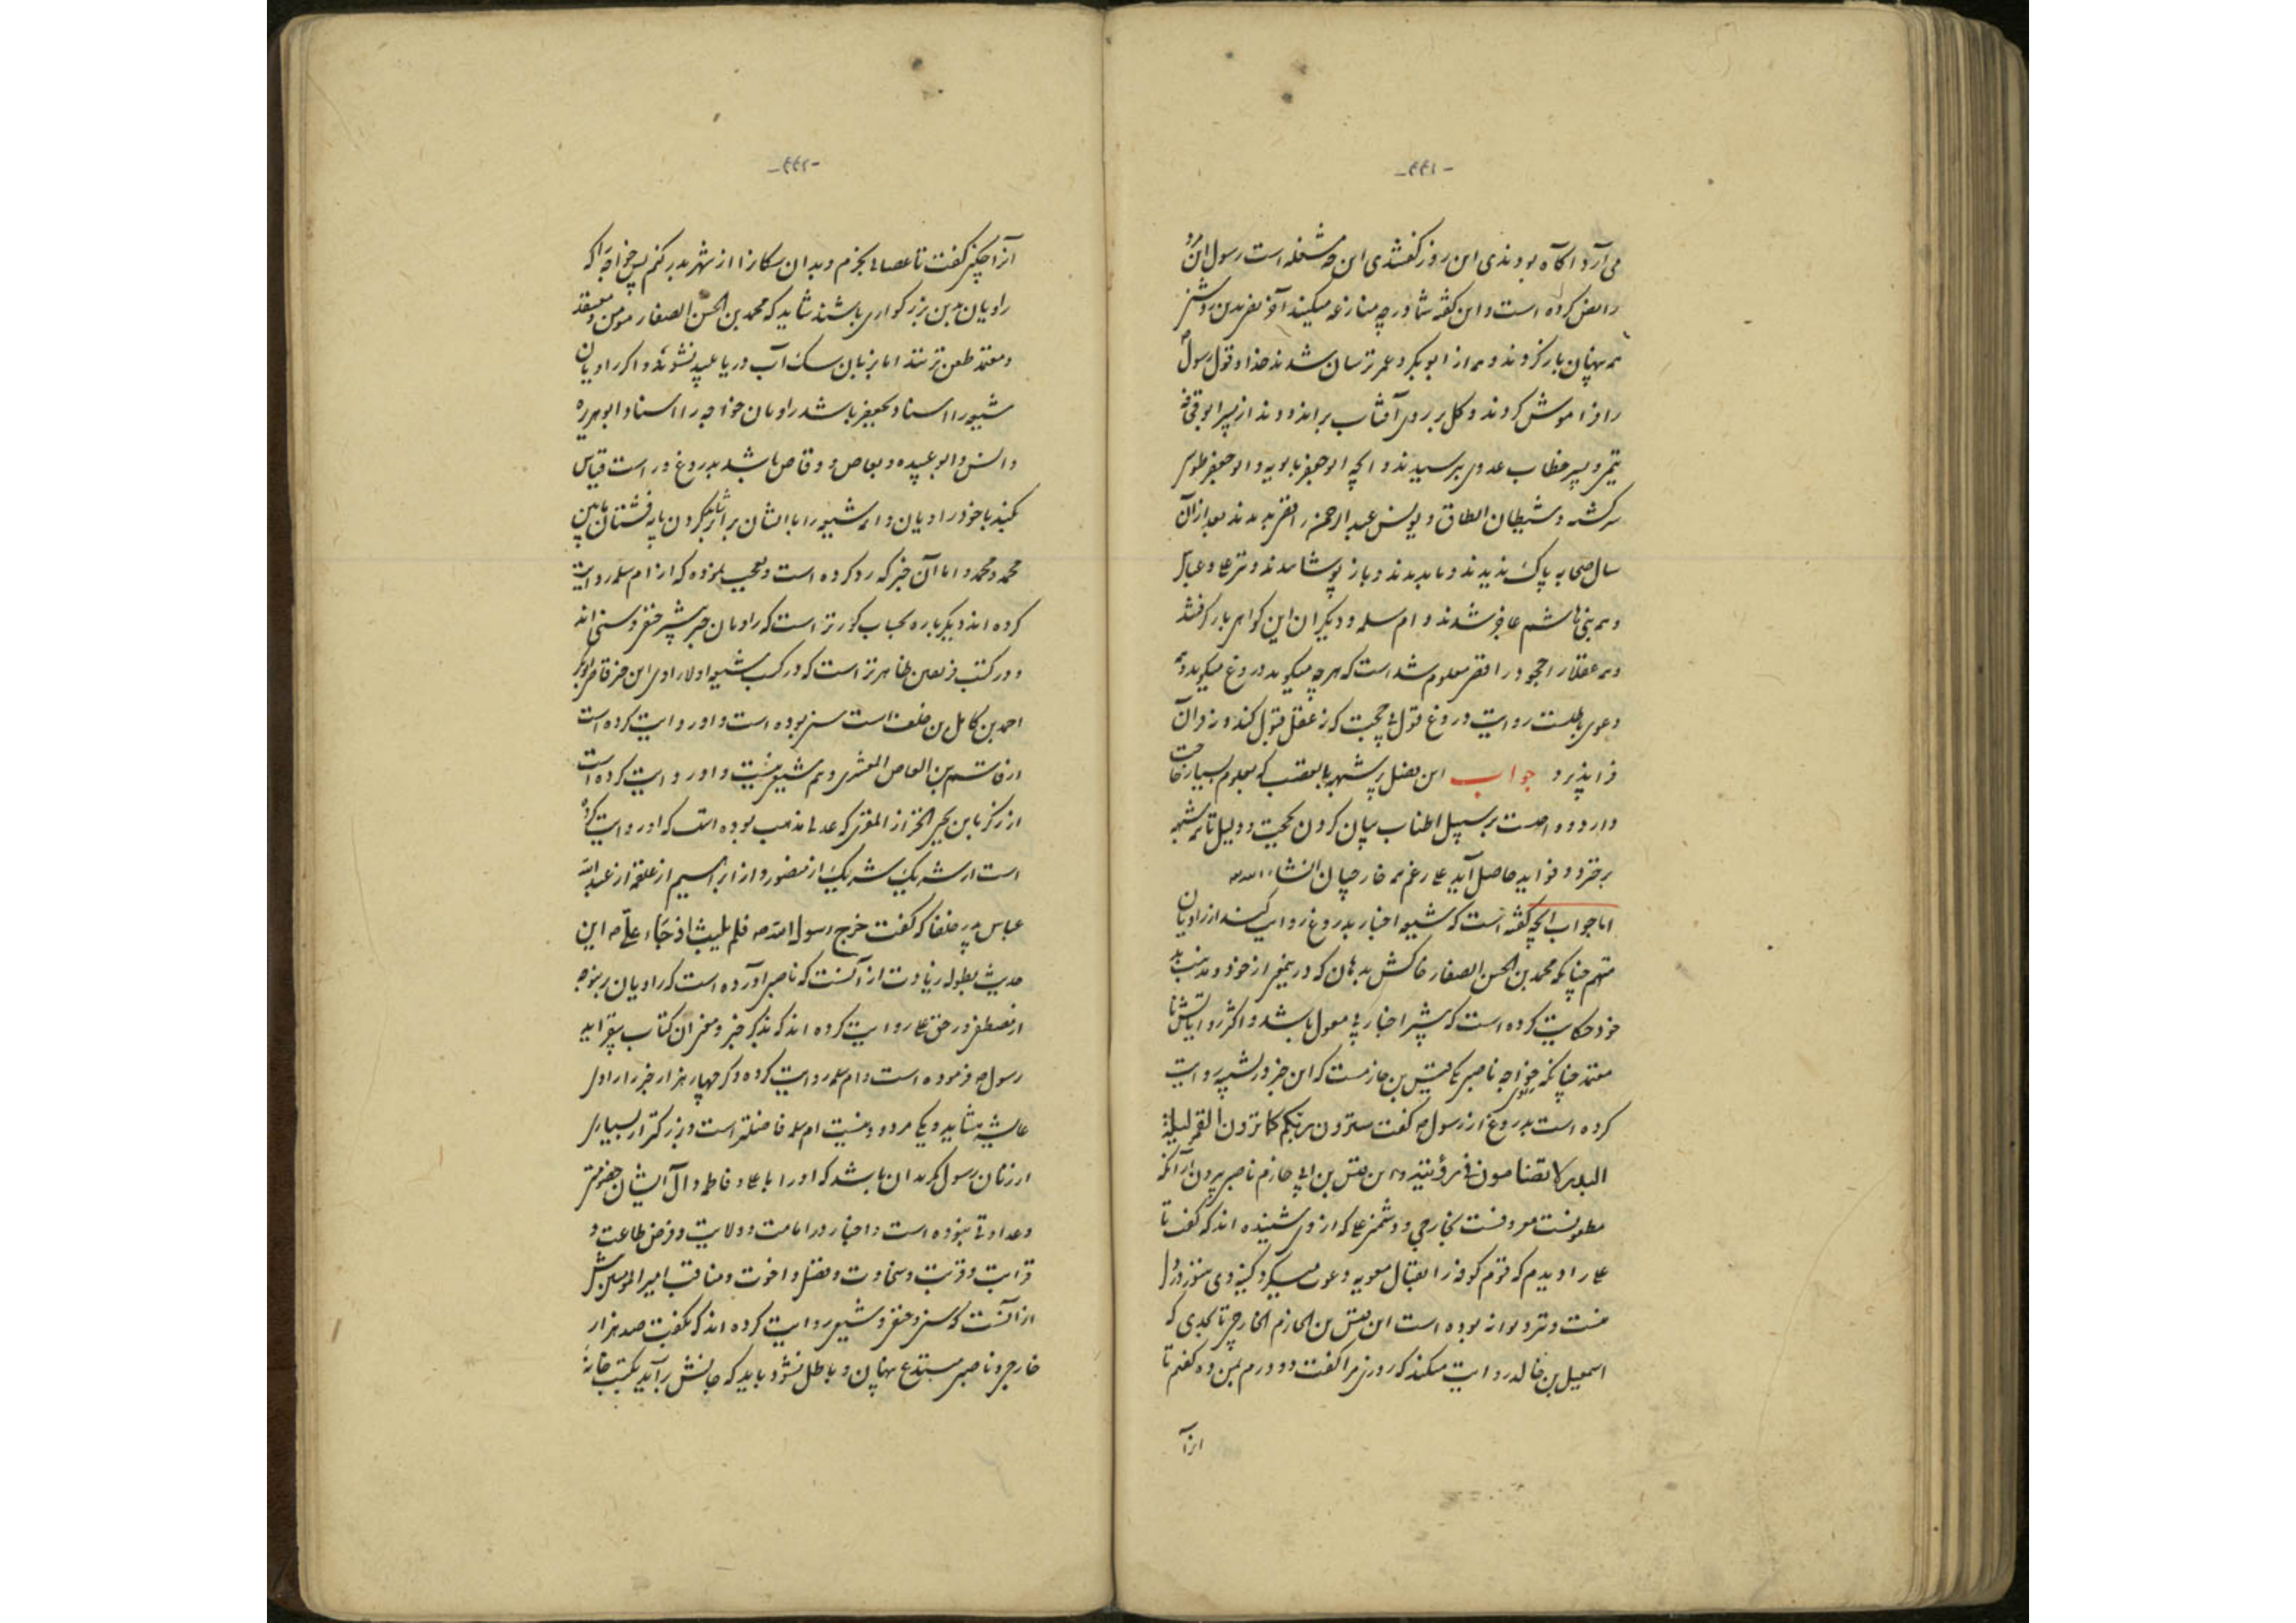 -۴۴۱-
می‌آرد آگاه بودندی این روز گفتندی این چه مشغله است رسول آن مرد
را نص کرده است و این گفته شما در چه منازعه میکنید آخر نفریدن
همه پنهان باز کردند و همه از ابوبکر و عمر ترسان شدند خدا و قول رسول
را فراموش کردند و گل بر روی آفتاب براندودند از پسر ابوقحافه
تیمی و پسر خطاب عدوی بترسیدند و آنچه ابوجعفر بابویه و ابوجعفر طوسی
سرگشته و شیطان الطاق و یونس عبدالرحمن رافضی بدیدند بعد از آن
سال صحابه پاک ندیدند و باز پوشانیدند و علی و عباس
و همه بنی هاشم عاجز شدند و ام سلمه و دیگران این گواهی باز گرفتند
و همه عقلا را حجود رافضی معلوم شده است که هر چه میگوید دروغ میگوید و همه
دعوی باطلست روایت دروغ قول بی حجت که نه عقل قبول کند و نه قرآن
فرا پذیرد جواب این فصل پر شبهه با تعصب که معلوم بسیار حاجت
دارد و واجبست بر سبیل اطناب بیان کردن بحجت و دلیل تا همه شبهه
برخیزد و فواید حاصل آید علی رغم همه خارجیان انشاء الله
اما جواب آنچه گفته است که شیعه اخبار بدروغ روایت کنند از راویان
متهم چنانکه محمد بن الحسن الصفار خاکش بدهان که در پیغمبر از خود و مذهب بد
خود حکایت کرده است که بیشتر اخبار بی معول باشد و اکثر روایاتش نا
معتمد چنانکه خواجه ناصبی یکی قیس بن حازمست که این خبر در تشبیه روایت
کرده است بدروغ از رسول که گفت سترون ربکم کما ترون القمر لیلة
البدر لا تضامون فی رؤیته و این قیس بن ابی حازم ناصبی بیرون از آنکه
مطعونست معروفست بخارجی و دشمنی علی که از وی شنیده اند که گفت تا
علی را دیدم که قوم کوفه را بقتال معویه دعوت میکرد کینه وی هنوز در دل
منست و خر و دیوانه بوده است این قیس بن الحازم الخارجی تا بحدی که
اسمعیل بن خالد روایت میکند که روزی مرا گفت دو درم بمن ده گفتم تا
از آ
-۴۴۲-
از آن چکنی گفت تا عصایی بخرم و بدان سگان را از شهر بدر کنم پس خواجه را که
راویان بدین بزرگواری باشند شاید که محمد بن الحسن الصفار مؤمن و معتقد
و معتمد طعن نزنند اما بزبان سگ آب دریا پلید نشود و اگر راویان
شیعه را اسناد بجعفر باشد راویان خواجه را اسناد و ابوهریره
و انس و ابوعبیده و بعاص و وقاص باشد بدروغ و راست قیاس
بکند با خود راویان و ائمه شیعه را با ایشان برابر کردن
محمد و محمد و اما آن خبر که رد کرده است و تعجب نموده که از ام سلمه روایت
کرده اند دیگر باره بحساب کورتر است که راویان خبر بیشتر حنفی و سنی اند
و در کتب فریقین ظاهرتر است که در کتب شیعه اولا راوی این خبر قاضی ابوبکر
احمد بن کامل بن خلف است سنی بوده است و او روایت کرده است
از قاسم بن العاص المعشری و هم شیعی نیست و او روایت کرده است
از زکریا بن یحیی الخزاز المقری که عدلی مذهب بوده است که او روایت کرده
است از شریک شریک از منصور و از ابراهیم از علقمه از عبدالله
عباس پدر خلفا که گفت خرج رسول الله فلم یلبث اذ جاء علی این
حدیث بطوله زیادت از آنست که ناصبی آورده است که راویان
از مصطفی در حق علی روایت کرده اند که بذکر خبر و معنی آن کتاب بیفزاید
رسول فرموده است و ام سلمه روایت کرده و گر چهار هزار خبر را راوی
عایشه میشاید و یکی مردود نیست ام سلمه فاضلتر است و بزرگتر از بسیاری
از زنان رسول مگر بدان باشد که او را با علی و فاطمه و آل ایشان خصومتی
و عداوتی نبوده است و اخبار در امامت و ولایت و فرض طاعت و
قرابت و قربت و سخاوت و فضل و اخوت و مناقب امیرالمؤمنین بیش
از آنست که سنی و حنفی و شیعی روایت کرده اند که بگفت صد هزار
خارجی و ناصبی مبتدع پنهان و باطل نشود باید که جانش برآید بکتب خانه